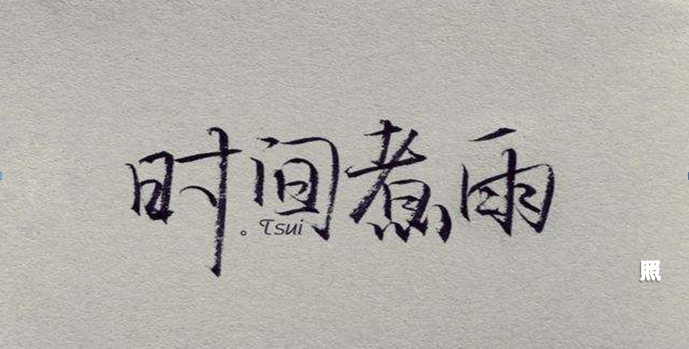 时间煮雨
。Tsui
照